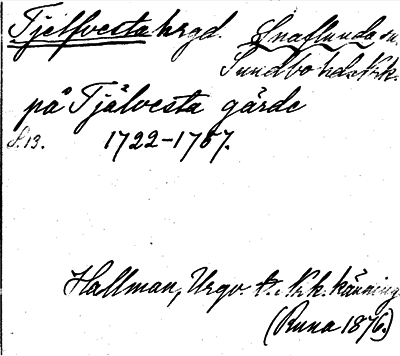 Tjelfvesta hrgd. Snaflunda sn.
Sundbo hd. Nrk.
på Tjälvesta gärde
S. 13. 1722-1757.
Hallman, Urgv. t. Nrk. känning
(Runa 1876.)